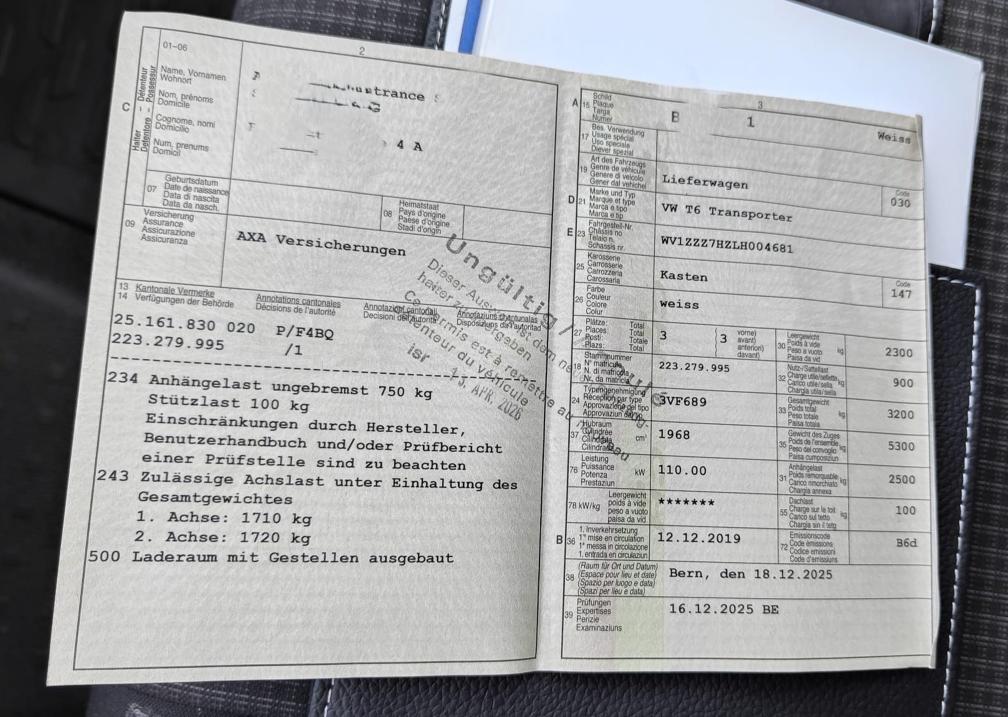 2
01-06
Name, Vornamen
Wohnort
Nom, prénoms
Domicile
Cognome, nomi
Domicilio
Num, prenums
Domicil
C
Halter - Détenteur
Detentore - Possessur
4 A
07
Geburtsdatum
Date de naissance
Data di nascita
Data da nasch.
08
Heimatstaat
Pays d'origine
Paese d'origine
Stadi d'origin
09
Versicherung
Assurance
Assicurazione
Assicuranza
AXA Versicherungen
13 Kantonale Vermerke
14 Verfügungen der Behörde
Annotations cantonales
Décisions de l'autorité
Annotazioni cantonali
Decisioni dell'autorità
Annotaziuns chantunalas
Disposiziuns da l'autoritad
25.161.830 020 P/F4BQ
223.279.995 /1
234 Anhängelast ungebremst 750 kg
Stützlast 100 kg
Einschränkungen durch Hersteller,
Benutzerhandbuch und/oder Prüfbericht
einer Prüfstelle sind zu beachten
243 Zulässige Achslast unter Einhaltung des
Gesamtgewichtes
1. Achse: 1710 kg
2. Achse: 1720 kg
500 Laderaum mit Gestellen ausgebaut
Ungültig /
Dieser Ausweis ist dem
halter zu übergeben
Ce permis est à remettre au
détenteur du véhicule
isr
APR. 2026
3
A 15
Schild
Plaque
Targa
Numer
B 1
Weiss
17
Bes. Verwendung
Usage spécial
Uso speciale
Diever spezial
19
Art des Fahrzeugs
Genre de véhicule
Genere di veicolo
Gener dal vehichel
Lieferwagen
Code
030
D 21
Marke und Typ
Marque et type
Marca e tipo
Marca e tip
VW T6 Transporter
E 23
Fahrgestell-Nr.
Châssis no
Telaio n.
Schassis nr.
WV1ZZZ7HZLH004681
25
Karosserie
Carrosserie
Carrozzeria
Carossaria
Kasten
Code
147
26
Farbe
Couleur
Colore
Colur
weiss
27
Plätze: Total
Places: Total
Posti: Totale
Plazs: Total
3
3
vorne)
avant)
anteriori)
davant)
30
Leergewicht
Poids à vide
Peso a vuoto
Paisa da vid
kg
2300
18
Stammnummer
N° matricule
N. di matricola
Nr. da matricla
223.279.995
32
Nutz-/Sattellast
Charge utile/sellette
Carico utile/sella
Chargia utila/sella
kg
900
24
Typengenehmigung
Réception par type
Approvazione del tipo
3VF689
33
Gesamtgewicht
Poids total
Peso totale
Paisa totala
kg
3200
37
Hubraum
Cylindrée
Cilindrata
cm³
1968
35
Gewicht des Zuges
Poids de l'ensemble
Peso del convoglio
Paisa cumposiziun
kg
5300
76
Leistung
Puissance
Potenza
Prestaziun
kW
110.00
31
Anhängelast
Poids remorquable
Carico rimorchiato
Chargia annexa
kg
2500
78 kW/kg
Leergewicht
poids à vide
peso a vuoto
paisa da vid
*******
55
Dachlast
Charge sur le toit
Carico sul tetto
Chargia sin il tetg
kg
100
B 36
1. Inverkehrsetzung
1re mise en circulation
1a messa in circolazione
1. entrada en circulaziun
12.12.2019
72
Emissionscode
Code émissions
Codice emissioni
Code d'emissiuns
B6d
38
(Raum für Ort und Datum)
(Espace pour lieu et date)
(Spazio per luogo e data)
(Spazi per lieu e data)
Bern, den 18.12.2025
39
Prüfungen
Expertises
Perizie
Examinaziuns
16.12.2025 BE